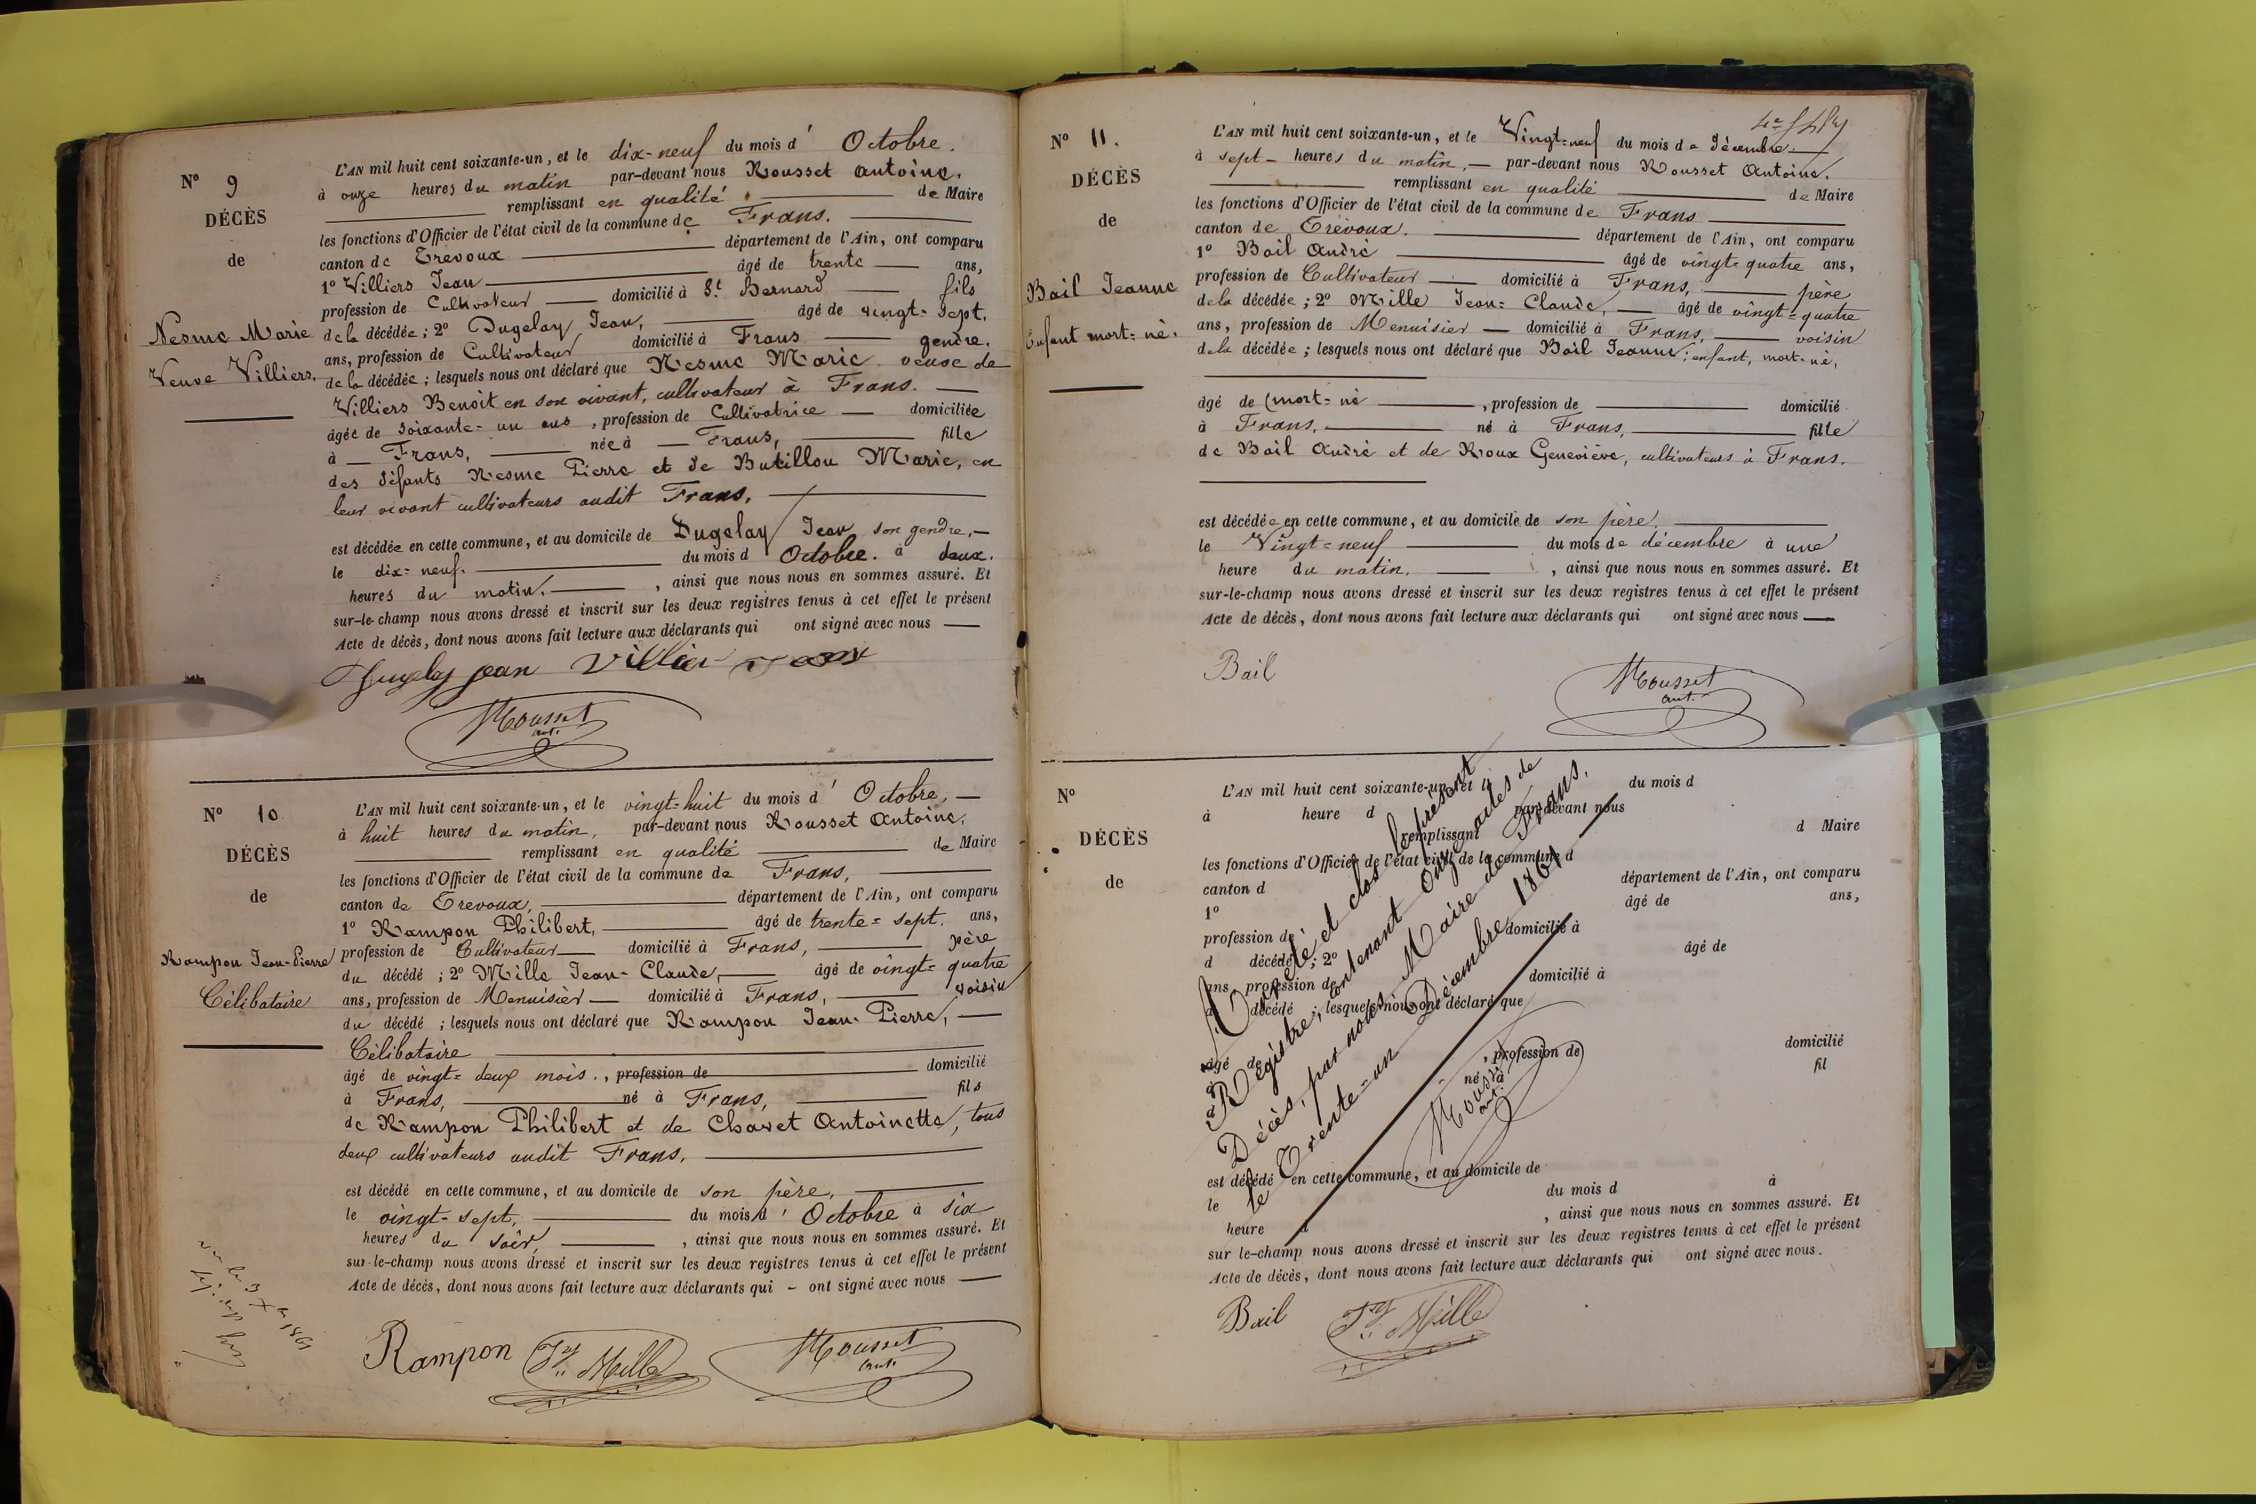 N° 9
DÉCÈS
de
Nesme Marie
Veuve Villiers.
L'AN mil huit cent soixante-un, et le dix-neuf du mois d' Octobre.
à onze heures du matin par-devant nous Rousset Antoine.
remplissant en qualité de Maire
les fonctions d'Officier de l'état civil de la commune de Frans.
canton de Trevoux département de l'Ain, ont comparu
1° Villiers Jean âgé de trente ans,
profession de Cultivateur domicilié à St. Bernard fils
de la décédée; 2° Dugelay Jean, âgé de vingt-sept.
ans, profession de Cultivateur domicilié à Frans gendre.
de la décédée; lesquels nous ont déclaré que Nesme Marie veuve de
Villiers Benoit en son vivant, cultivateur à Frans.
âgée de soixante-un ans, profession de Cultivatrice domiciliée
à Frans, née à Frans, fille
des défunts Nesme Pierre et de Butillon Marie, en
leur vivant cultivateurs audit Frans,
est décédée en cette commune, et au domicile de Dugelay Jean son gendre,
le dix-neuf. du mois d Octobre. à deux.
heures du matin. , ainsi que nous nous en sommes assuré. Et
sur-le-champ nous avons dressé et inscrit sur les deux registres tenus à cet effet le présent
Acte de décès, dont nous avons fait lecture aux déclarants qui ont signé avec nous
Dugelay jean Villier Jean
Rousset
ant.
N° 10
DÉCÈS
de
Rampon Jean-Pierre
Célibataire
L'AN mil huit cent soixante-un, et le vingt-huit du mois d' Octobre,
à huit heures du matin, par-devant nous Rousset Antoine,
remplissant en qualité de Maire
les fonctions d'Officier de l'état civil de la commune de Frans,
canton de Trevoux, département de l'Ain, ont comparu
1° Rampon Philibert, âgé de trente-sept. ans,
profession de Cultivateur domicilié à Frans, père
du décédé; 2° Mille Jean-Claude, âgé de vingt-quatre
ans, profession de Menuisier domicilié à Frans, voisin
du décédé; lesquels nous ont déclaré que Rampon Jean-Pierre,
Célibataire
âgé de vingt-deux mois., profession de domicilié
à Frans, né à Frans, fils
de Rampon Philibert et de Chavet Antoinette, tous
deux cultivateurs audit Frans,
est décédé en cette commune, et au domicile de son père,
le vingt-sept, du mois d' Octobre à six
heures du soir, , ainsi que nous nous en sommes assuré. Et
sur-le-champ nous avons dressé et inscrit sur les deux registres tenus à cet effet le présent
Acte de décès, dont nous avons fait lecture aux déclarants qui - ont signé avec nous
Rampon Mille Rousset
ant.
N° 11.
DÉCÈS
de
Bail Jeanne
Enfant mort-né.
L'AN mil huit cent soixante-un, et le Vingt-neuf du mois de décembre.
à sept heures du matin, par-devant nous Rousset Antoine.
remplissant en qualité de Maire
les fonctions d'Officier de l'état civil de la commune de Frans
canton de Trévoux. département de l'Ain, ont comparu
1° Bail André âgé de vingt-quatre ans,
profession de Cultivateur domicilié à Frans, père
de la décédée; 2° Mille Jean-Claude, âgé de vingt-quatre
ans, profession de Menuisier domicilié à Frans, voisin
de la décédée; lesquels nous ont déclaré que Bail Jeanne, enfant, mort-né,
âgé de mort-né , profession de domicilié
à Frans, né à Frans, fille
de Bail André et de Roux Geneviève, cultivateurs à Frans.
est décédée en cette commune, et au domicile de son père.
le Vingt-neuf du mois de décembre à une
heure du matin. , ainsi que nous nous en sommes assuré. Et
sur-le-champ nous avons dressé et inscrit sur les deux registres tenus à cet effet le présent
Acte de décès, dont nous avons fait lecture aux déclarants qui ont signé avec nous
Bail Rousset
ant.
N°
DÉCÈS
de
L'AN mil huit cent soixante-un, et le du mois d
à heure d par-devant nous
remplissant d Maire
les fonctions d'Officier de l'état civil de la commune d
canton d département de l'Ain, ont comparu
1° âgé de ans,
profession de domicilié à
d décédé; 2° âgé de
ans, profession de domicilié à
d décédé; lesquels nous ont déclaré que
âgé de , profession de domicilié
à né à fil
d
est décédé en cette commune, et au domicile de
le du mois d à
heure d , ainsi que nous nous en sommes assuré. Et
sur le-champ nous avons dressé et inscrit sur les deux registres tenus à cet effet le présent
Acte de décès, dont nous avons fait lecture aux déclarants qui ont signé avec nous.
Arrêté et clos le présent
Régistre, contenant onze actes de
Décès, par nous Maire de Frans.
le Trente-un Décembre 1861
Rousset
ant.
Bail Mille